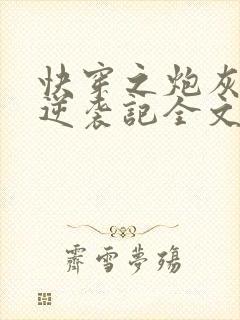 快穿之炮灰
逆袭记全文
霽雪夢殤